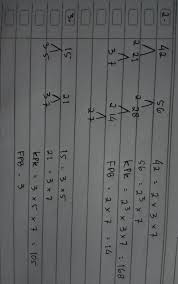 2.
42
2 21
3 7
56
2 28
2 14
2 7
42 = 2 x 3 x 7
56 = 2³ x 7
KPK = 2³ x 3 x 7 = 168
FPB = 2 x 7 = 14
3.
15
3 5
21
3 7
15 = 3 x 5
21 = 3 x 7
KPK = 3 x 5 x 7 = 105
FPB = 3